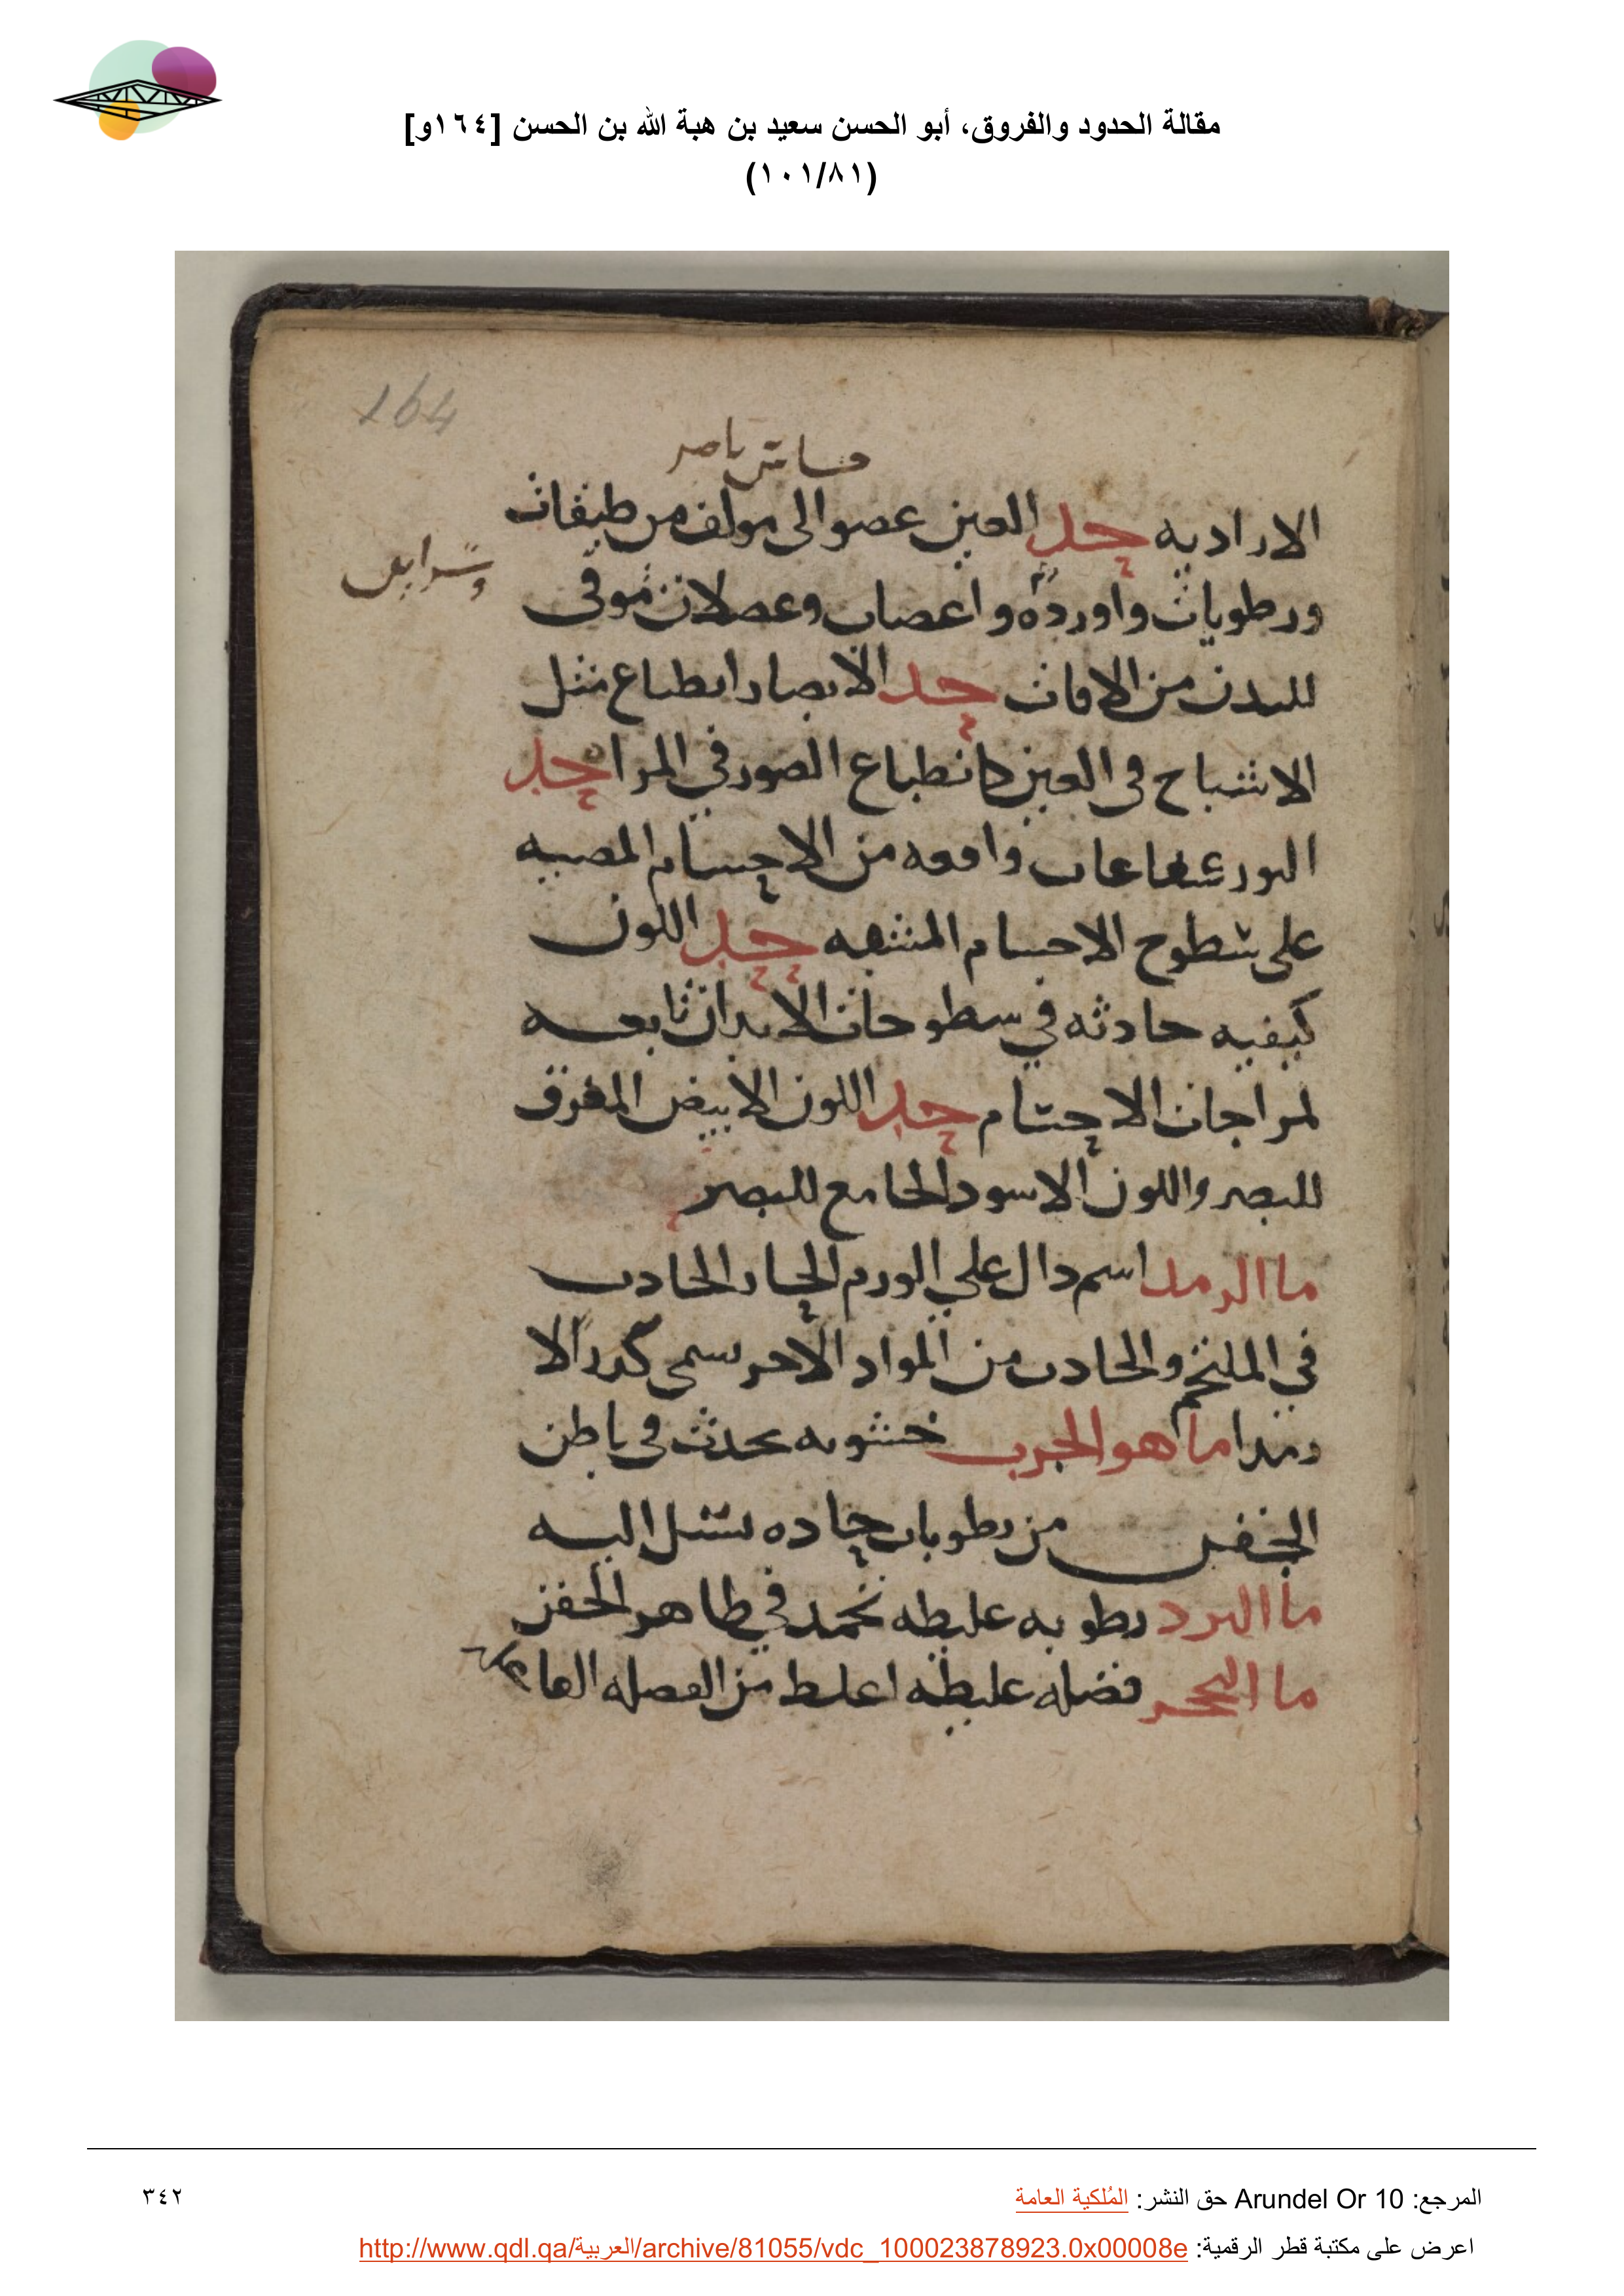 مقالة الحدود والفروق، أبو الحسن سعيد بن هبة الله بن الحسن [١٦٤و]
(١٠١/٨١)
164
حساس باصر
الاراديه حد العين عضو الى مولف من طبقات
وشرايين
ورطوبات واورده واعصاب وعضلات موقى
للبدن من الافات حد الابصار انطباع مثل
الاشباح فى العين كانطباع الصور في المرا حد
النور شعاعات واقعه من الاجسام المضيه
على سطوح الاجسام المشفه حد اللون
كيفيه حادثه في سطوحات الابدان تابعه
لمزاجات الاجسام حد اللون الابيض المفرق
للبصر واللون الاسود الجامع للبصر
ما الرمد اسم دال علي الورم الحار الحادث
في الملتحم والحادث من المواد الاخر يسمى كدرا لا
رمدا ما هو الجرب خشونه تحدث فى باطن
الجفن من رطوبات حاده اليه
ما البرد رطوبه غليظه تجمد في ظاهر الجفن
ما التحجر فضله غليظه اغلظ من الفضله الفاعله
المرجع: Arundel Or 10 حق النشر: المُلكية العامة
٣٤٢
اعرض على مكتبة قطر الرقمية: http://www.qdl.qa/العربية/archive/81055/vdc_100023878923.0x00008e